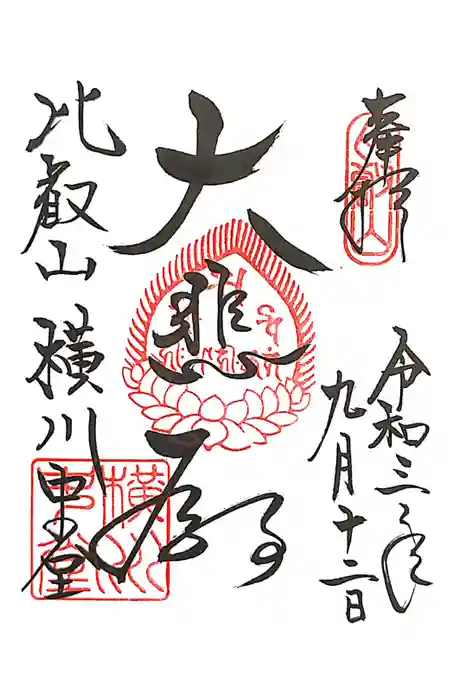 奉拝
令和三年
九月十二日
大悲殿
比叡山 横川中堂